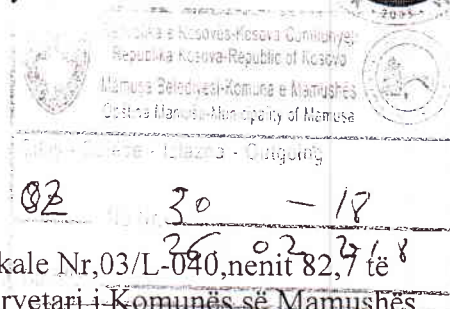 2005
Republika e Kosovës-Kosova Cumhuriyeti
Republika Kosova-Republic of Kosovo
Mamuşa Belediyesi-Komuna e Mamushës
Opština Mamuša-Municipality of Mamusa
- Izlazna - Outgoing
30 - 18
26 02
kale Nr,03/L-040,nenit 82,7 të
rvetari i Komunës së Mamushës